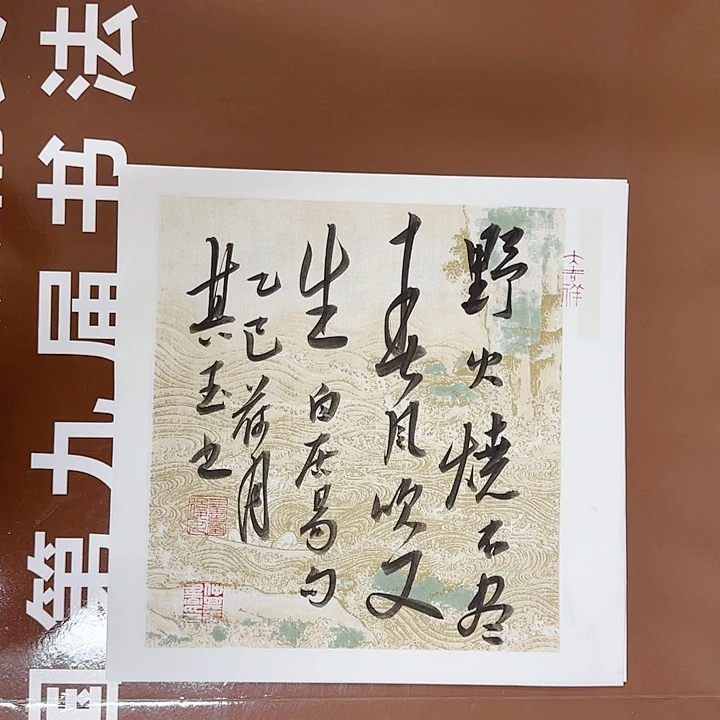 野火燒不尽
春风吹又
生 白居易句
乙巳荷月
其玉书
大吉祥
国第九届书法